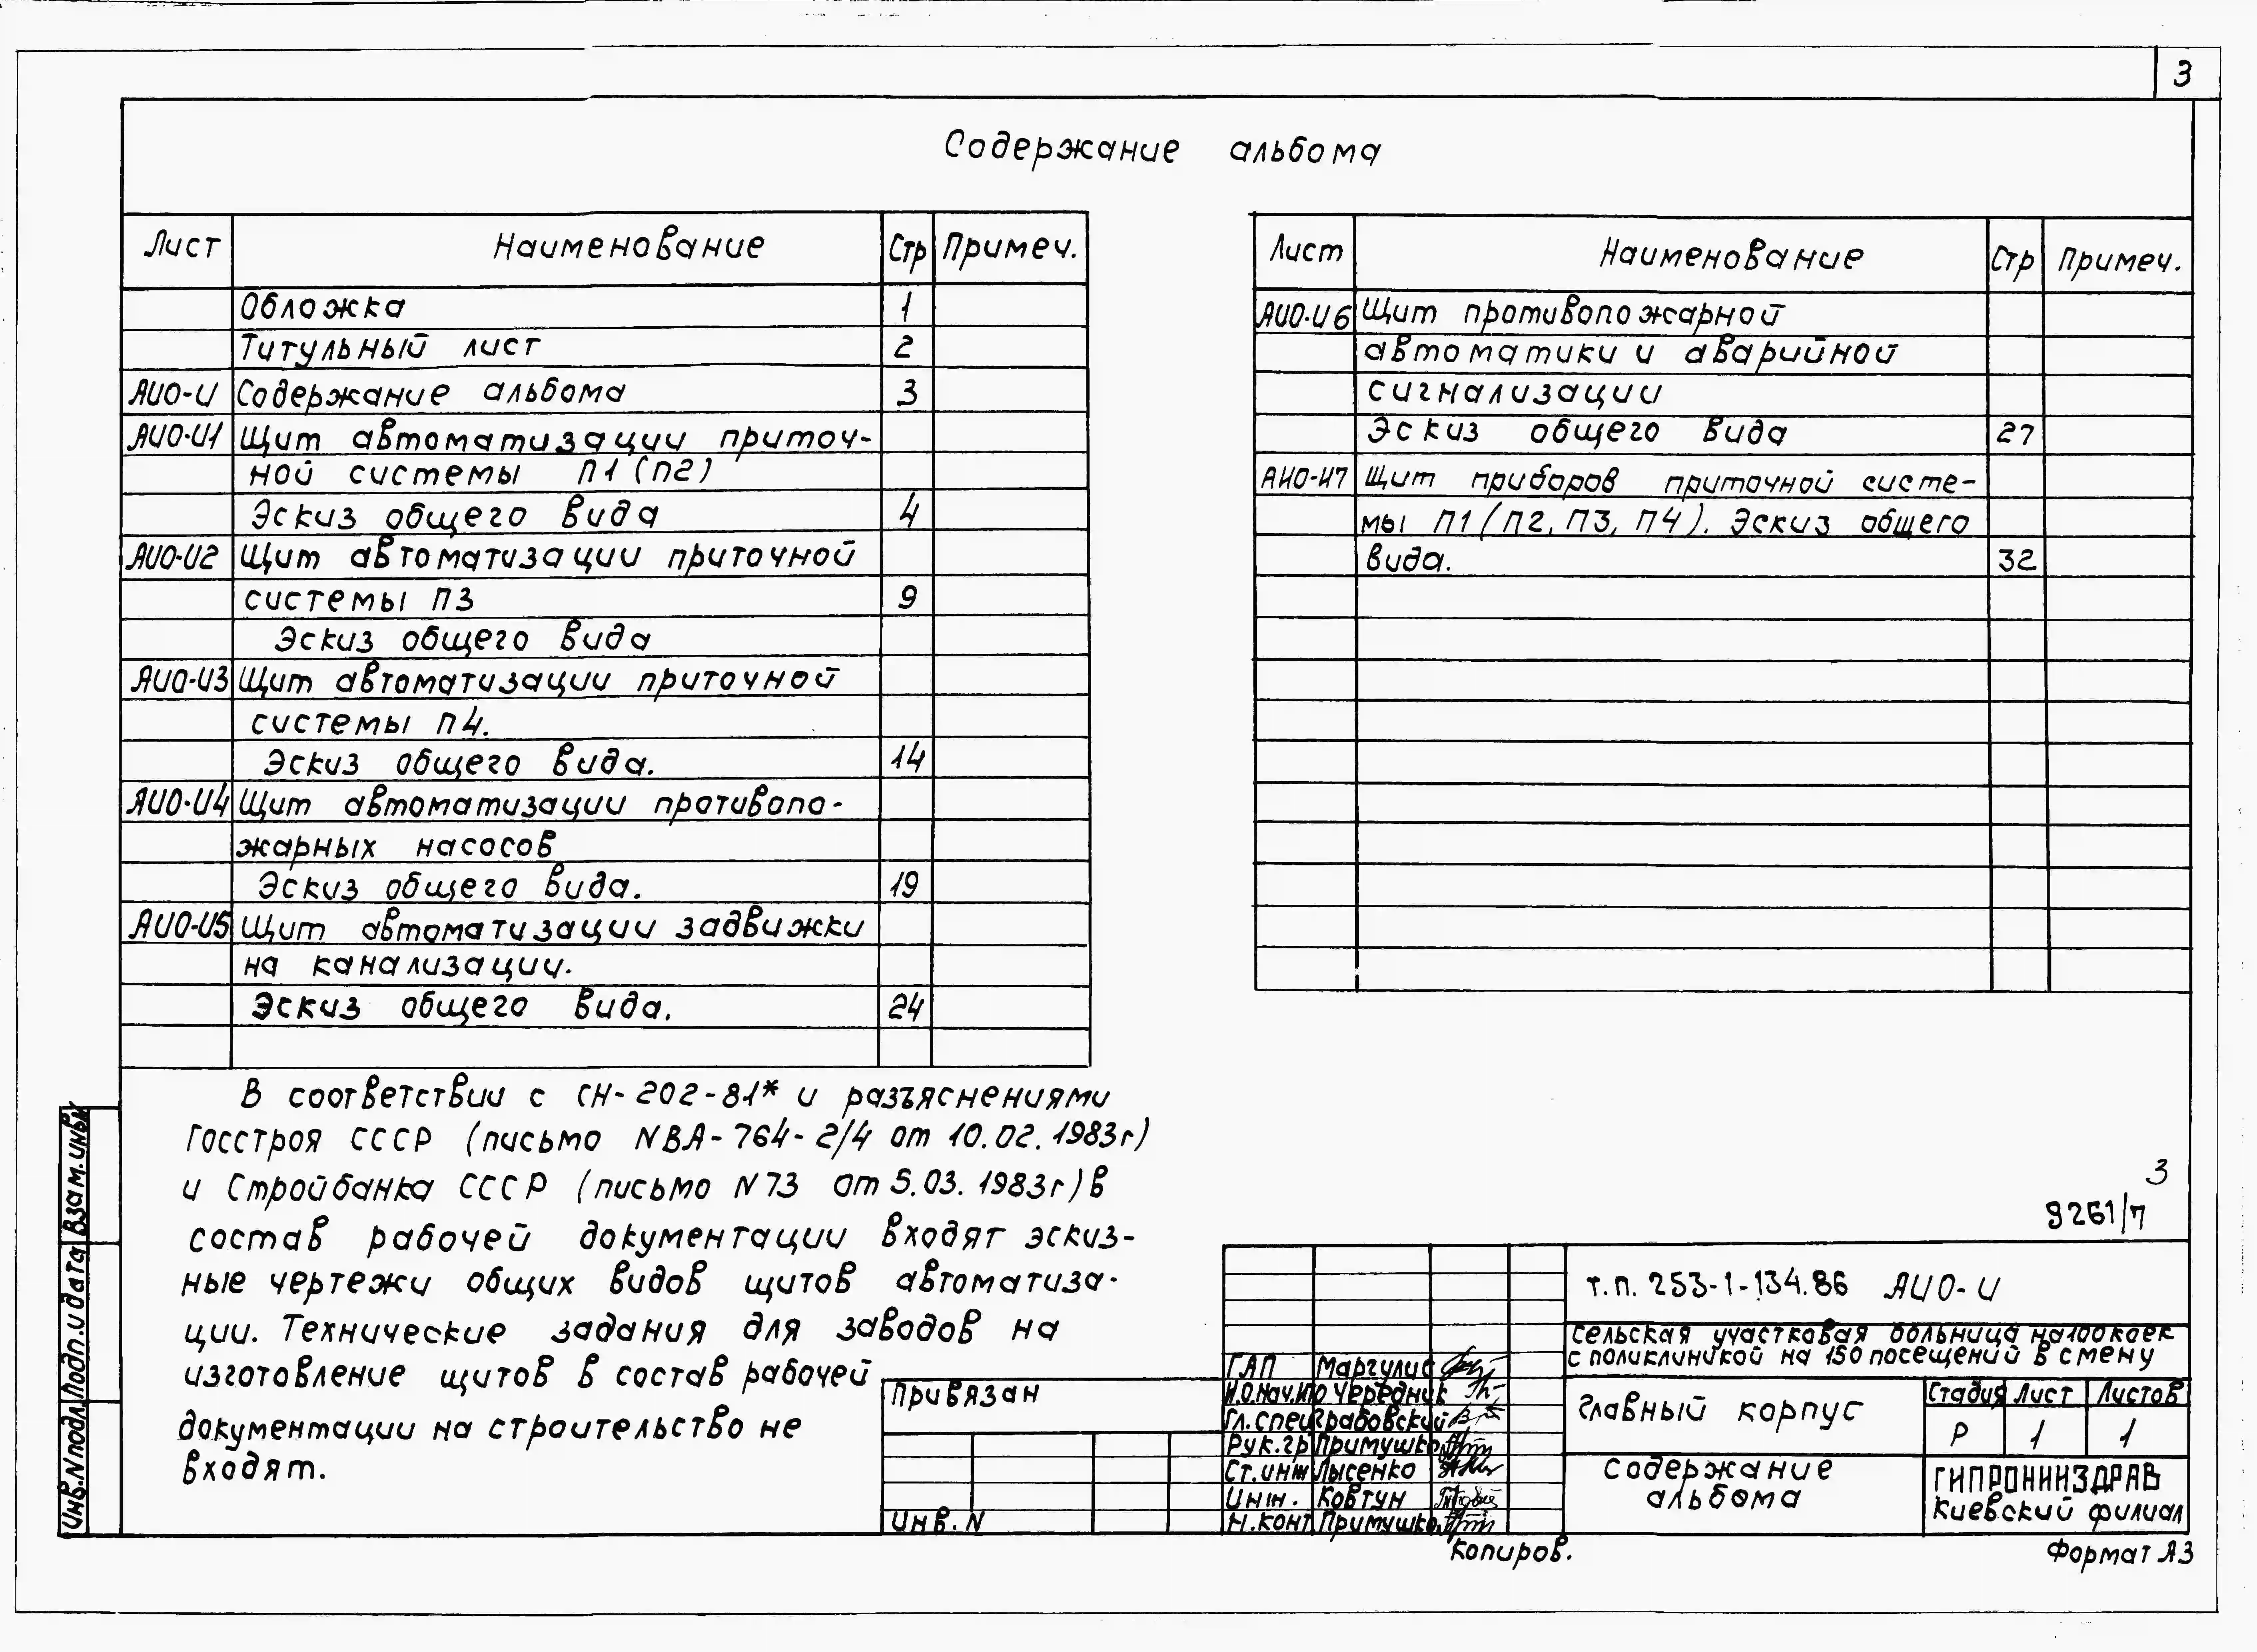 3
Содержание альбома
Лист Наименование Стр Примеч.
Обложка 1
Титульный лист 2
АИО-И Содержание альбома 3
АИО-И1 Щит автоматизации приточ-
ной системы П1 (П2)
Эскиз общего вида 4
АИО-И2 Щит автоматизации приточной
системы П3 9
Эскиз общего вида
АИО-И3 Щит автоматизации приточной
системы П4.
Эскиз общего вида. 14
АИО-И4 Щит автоматизации противопо-
жарных насосов
Эскиз общего вида. 19
АИО-И5 Щит автоматизации задвижки
на канализации.
Эскиз общего вида. 24
Лист Наименование Стр Примеч.
АИО-И6 Щит противопожарной
автоматики и аварийной
сигнализации
Эскиз общего вида 27
АИО-И7 Щит приборов приточной систе-
мы П1 (П2, П3, П4). Эскиз общего
вида. 32
В соответствии с СН-202-81* и разъяснениями
Госстроя СССР (письмо NВА-764-2/4 от 10.02.1983г)
и Стройбанка СССР (письмо N73 от 5.03.1983г) в
состав рабочей документации входят эскиз-
ные чертежи общих видов щитов автоматиза-
ции. Технические задания для заводов на
изготовление щитов в состав рабочей
документации на строительство не
входят.
3
9261/7
т.п. 253-1-134.86 АИО-И
Сельская участковая больница на 100 коек
с поликлиникой на 150 посещений в смену
Главный корпус
Стадия Лист Листов
Р 1 1
Содержание
альбома
ГИПРОНИИЗДРАВ
Киевский филиал
ГАП Маргулис
И.О.Нач.ИО Чередник
Гл.спец Грабовский
Рук.гр Примушко
Ст.инж Лысенко
Инж. Ковтун
Н.конт Примушко
Привязан
Инв.N
Взам.инв.N
Подп.и дата
Инв.Nподл.
Копиров.
Формат А3